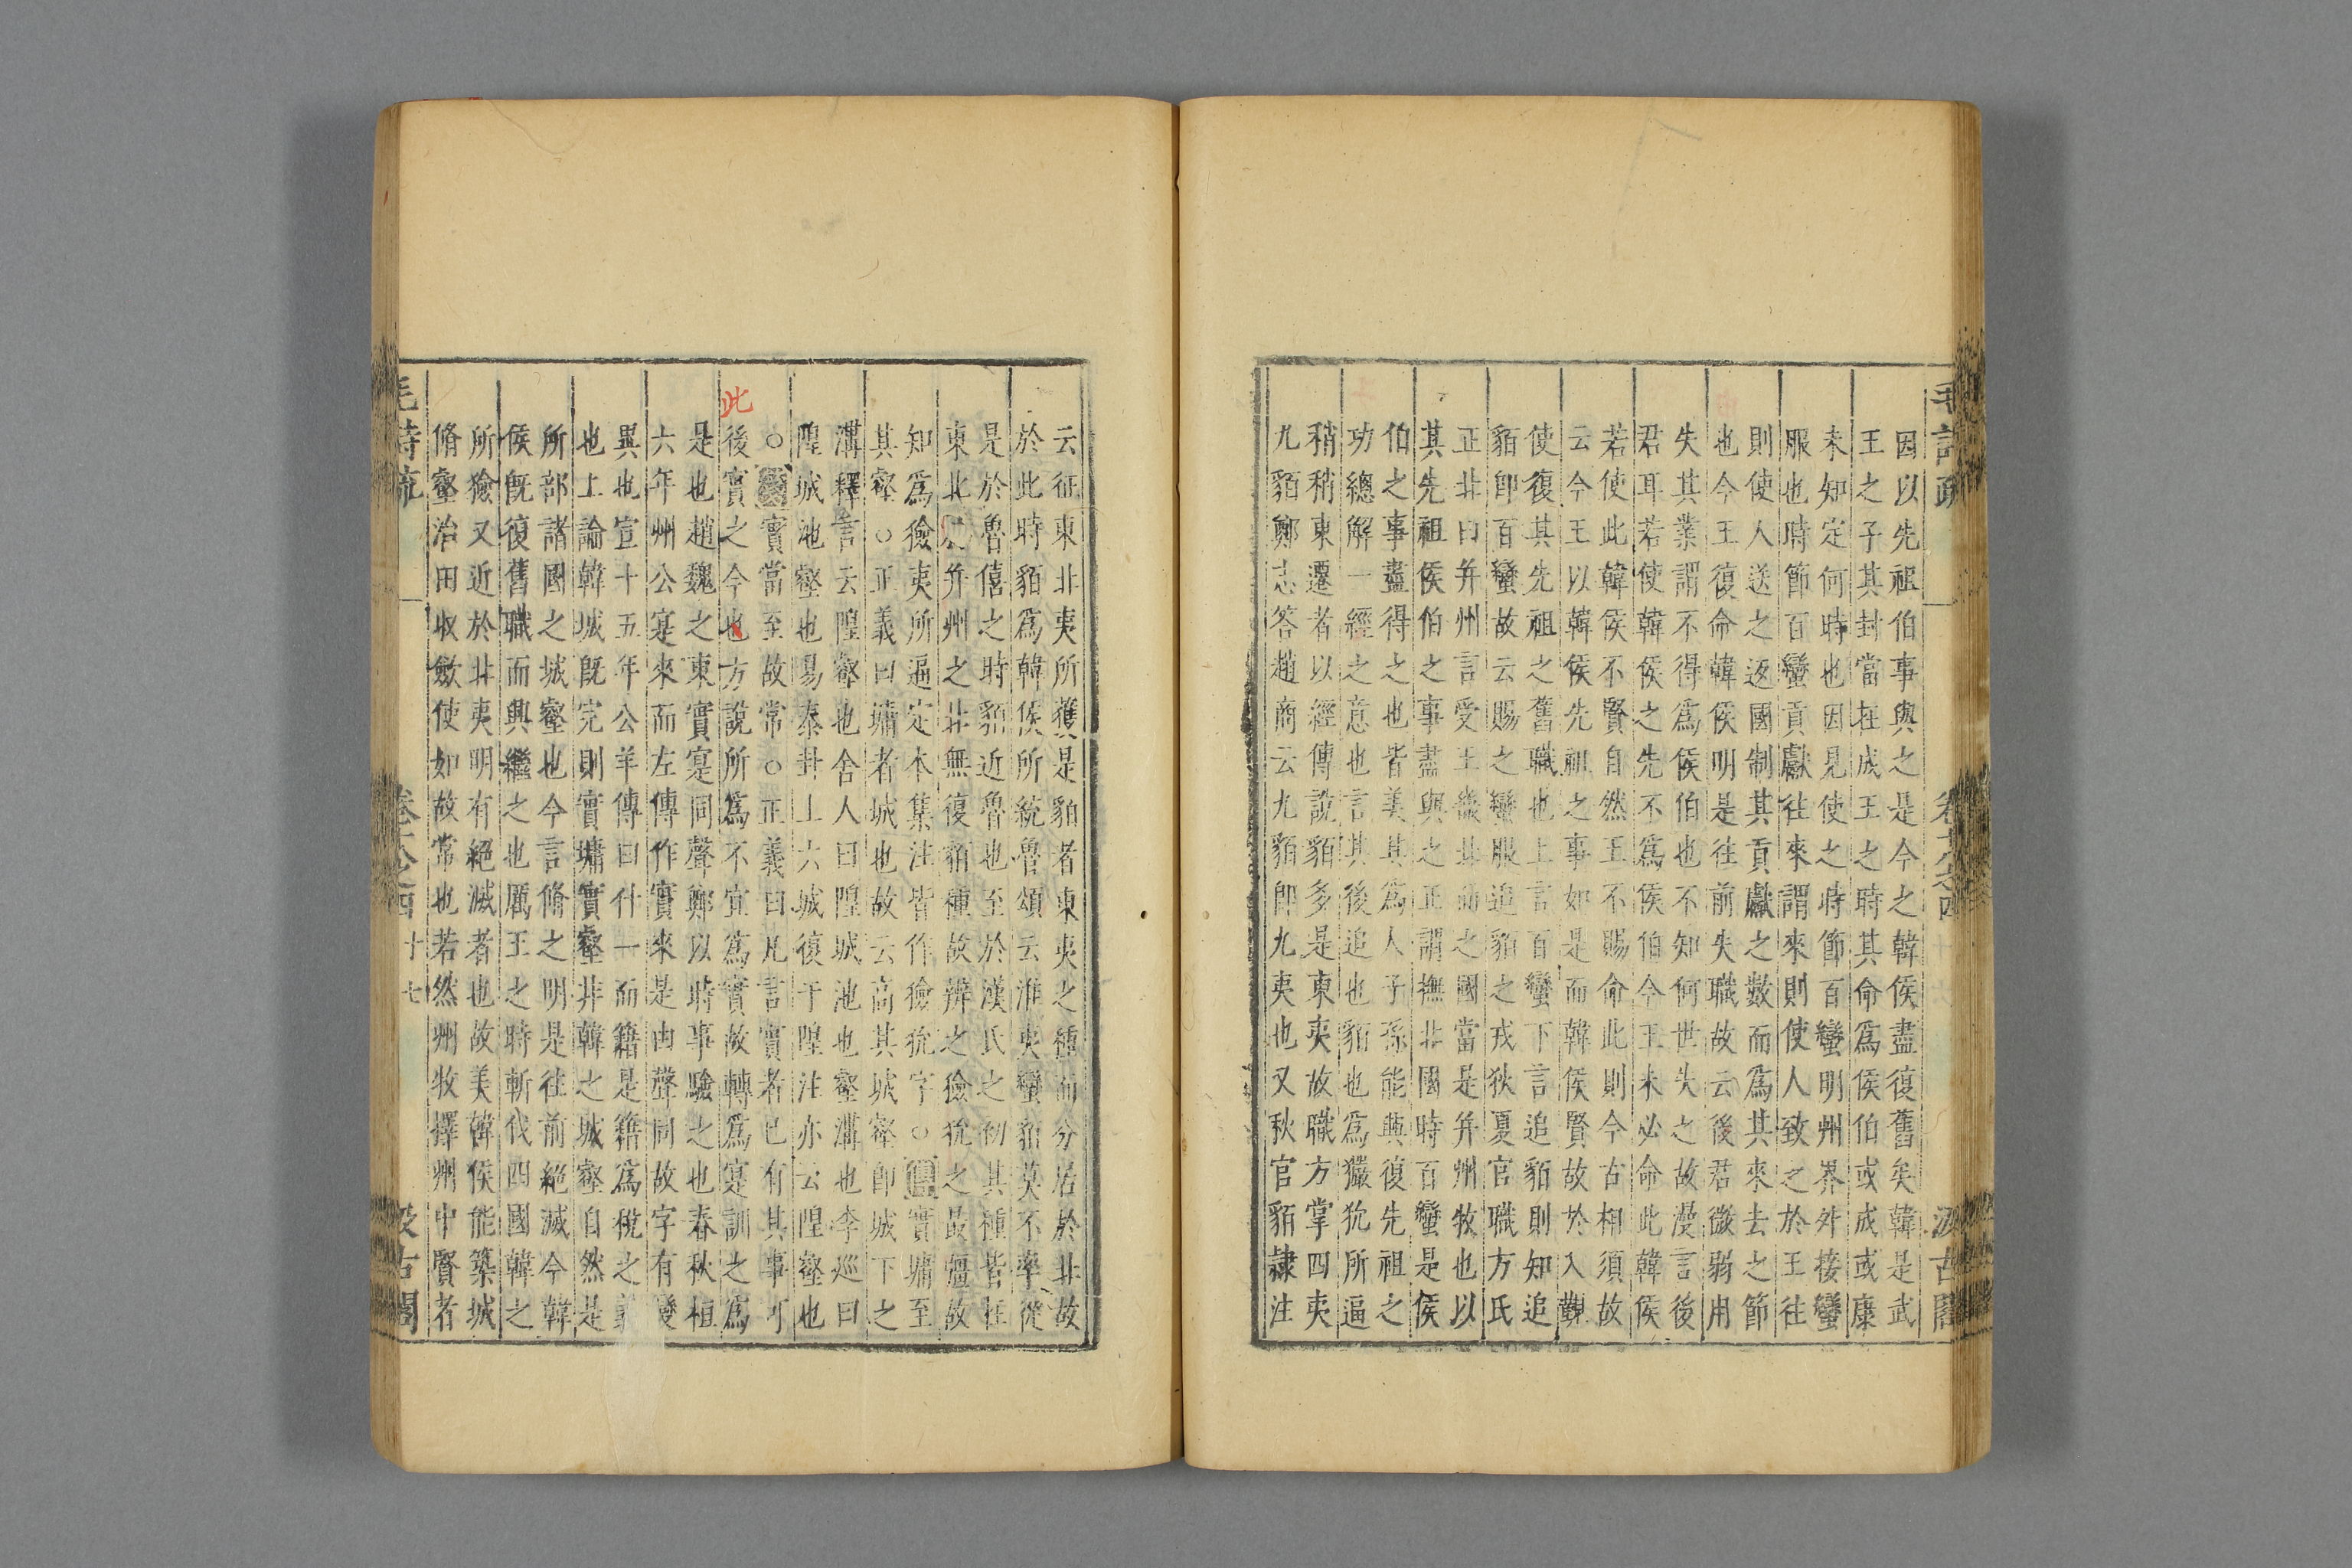 因以先祖伯事與之是今之韓侯盡復舊矣韓是武
王之子其封當在成王之時其命爲侯伯或成或康
未知定何時也因見使之時節百蠻明州界外接蠻
服也時節百蠻貢獻往來謂來則使人致之於王往
則使人送之返國制其貢獻之數而爲其來去之節
也今王復命韓侯明是往前失職故云後君微弱用
失其業謂不得爲侯伯也不知何世失之故漫言後
君耳若使韓侯之先不爲侯伯今王未必命此韓侯
若使此韓侯不賢自然王不賜命此則今古相須故
云今王以韓侯先祖之事如是而韓侯賢故於入覲
使復其先祖之舊職也上言百蠻下言追貊則知追
貊卽百蠻故云賜之蠻服追貊之戎狄夏官職方氏
正北曰幷州言受王畿北面之國當是幷州牧也以
其先祖侯伯之事盡與之正謂撫北國時百蠻是侯
伯之事盡得之也皆美其爲人子孫能興復先祖之
功總解一經之意也言其後追也貊也爲玁狁所逼
稍稍東遷者以經傳說貊多是東夷故職方掌四夷
九貊鄭志答趙商云九貊卽九夷也又秋官貊隸注
云征東北夷所獲是貊者東夷之種而分居於北故
於此時貊爲韓侯所統魯頌云淮夷蠻貊莫不率從
是於魯僖之時貊近魯也至於漢氏之初其種皆在
東北於幷州之北無復貊種故辨之獫狁之最彊故
知爲獫夷所逼定本集注皆作獫狁字○實墉至
其壑○正義曰墉者城也故云高其城壑卽城下之
溝釋言云隍壑也舍人曰隍城池也壑溝也李巡曰
隍城池壑也易泰卦上六城復于隍注亦云隍壑也
○實當至故常○正義曰凡言實者已有其事可
後實之今此方說所爲不宜爲實故轉爲寔訓之爲
是也趙魏之東實寔同聲鄭以時事驗之也春秋桓
六年州公寔來而左傳作實來是由聲同故字有變
異也宣十五年公羊傳曰什一而籍是籍爲稅之義
也上論韓城旣完則實墉實壑非韓之城壑自然是
所部諸國之城壑也今言脩之明是往前絕滅今韓
侯旣復舊職而興繼之也厲王之時斬伐四國韓之
所獫又近於北夷明有絕滅者也故美韓侯能築城
脩壑治田收斂使如故常也若然州牧擇州中賢者
毛詩疏
十七
汲古閣